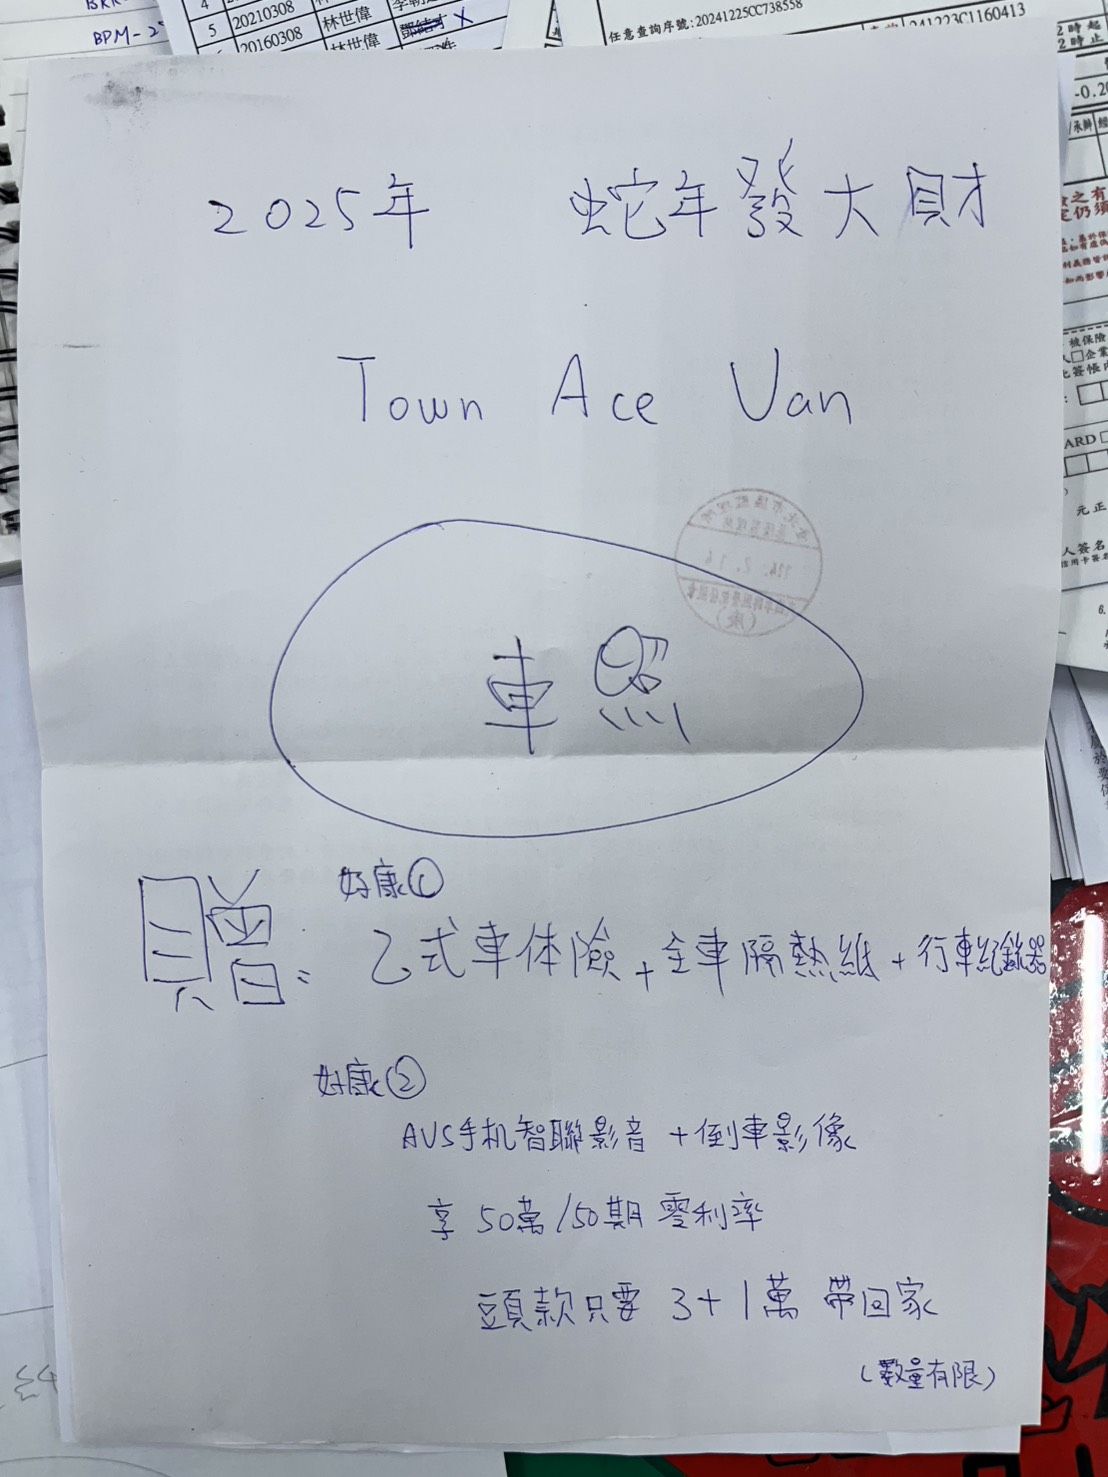 BPM-2
4
5 20210308 林世偉
20160308 林世偉
任意查詢序號:20241225CC738558
241223C1160413
2025年 蛇年發大財
Town Ace Van
車照
贈: 好康①
乙式車体險+全車隔熱紙+行車紀錄器
好康②
AVS手机智聯影音 +倒車影像
享 50萬/50期 零利率
頭款只要 3+1萬 帶回家
(數量有限)
-0.20
被保險
ARD
元正
人簽名